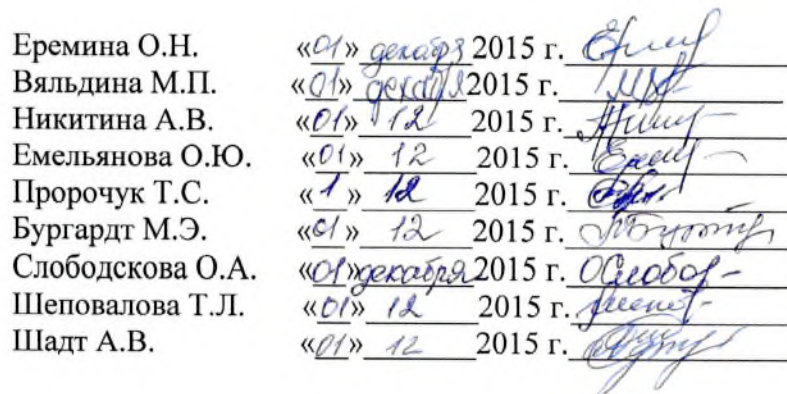 Еремина О.Н. «01» декабря 2015 г.
Вяльдина М.П. «01» декабря 2015 г.
Никитина А.В. «01» 12 2015 г.
Емельянова О.Ю. «01» 12 2015 г.
Пророчук Т.С. «1» 12 2015 г.
Бургардт М.Э. «01» 12 2015 г.
Слободскова О.А. «01» декабря 2015 г. ОСлобод
Шеповалова Т.Л. «01» 12 2015 г.
Шадт А.В. «01» 12 2015 г.